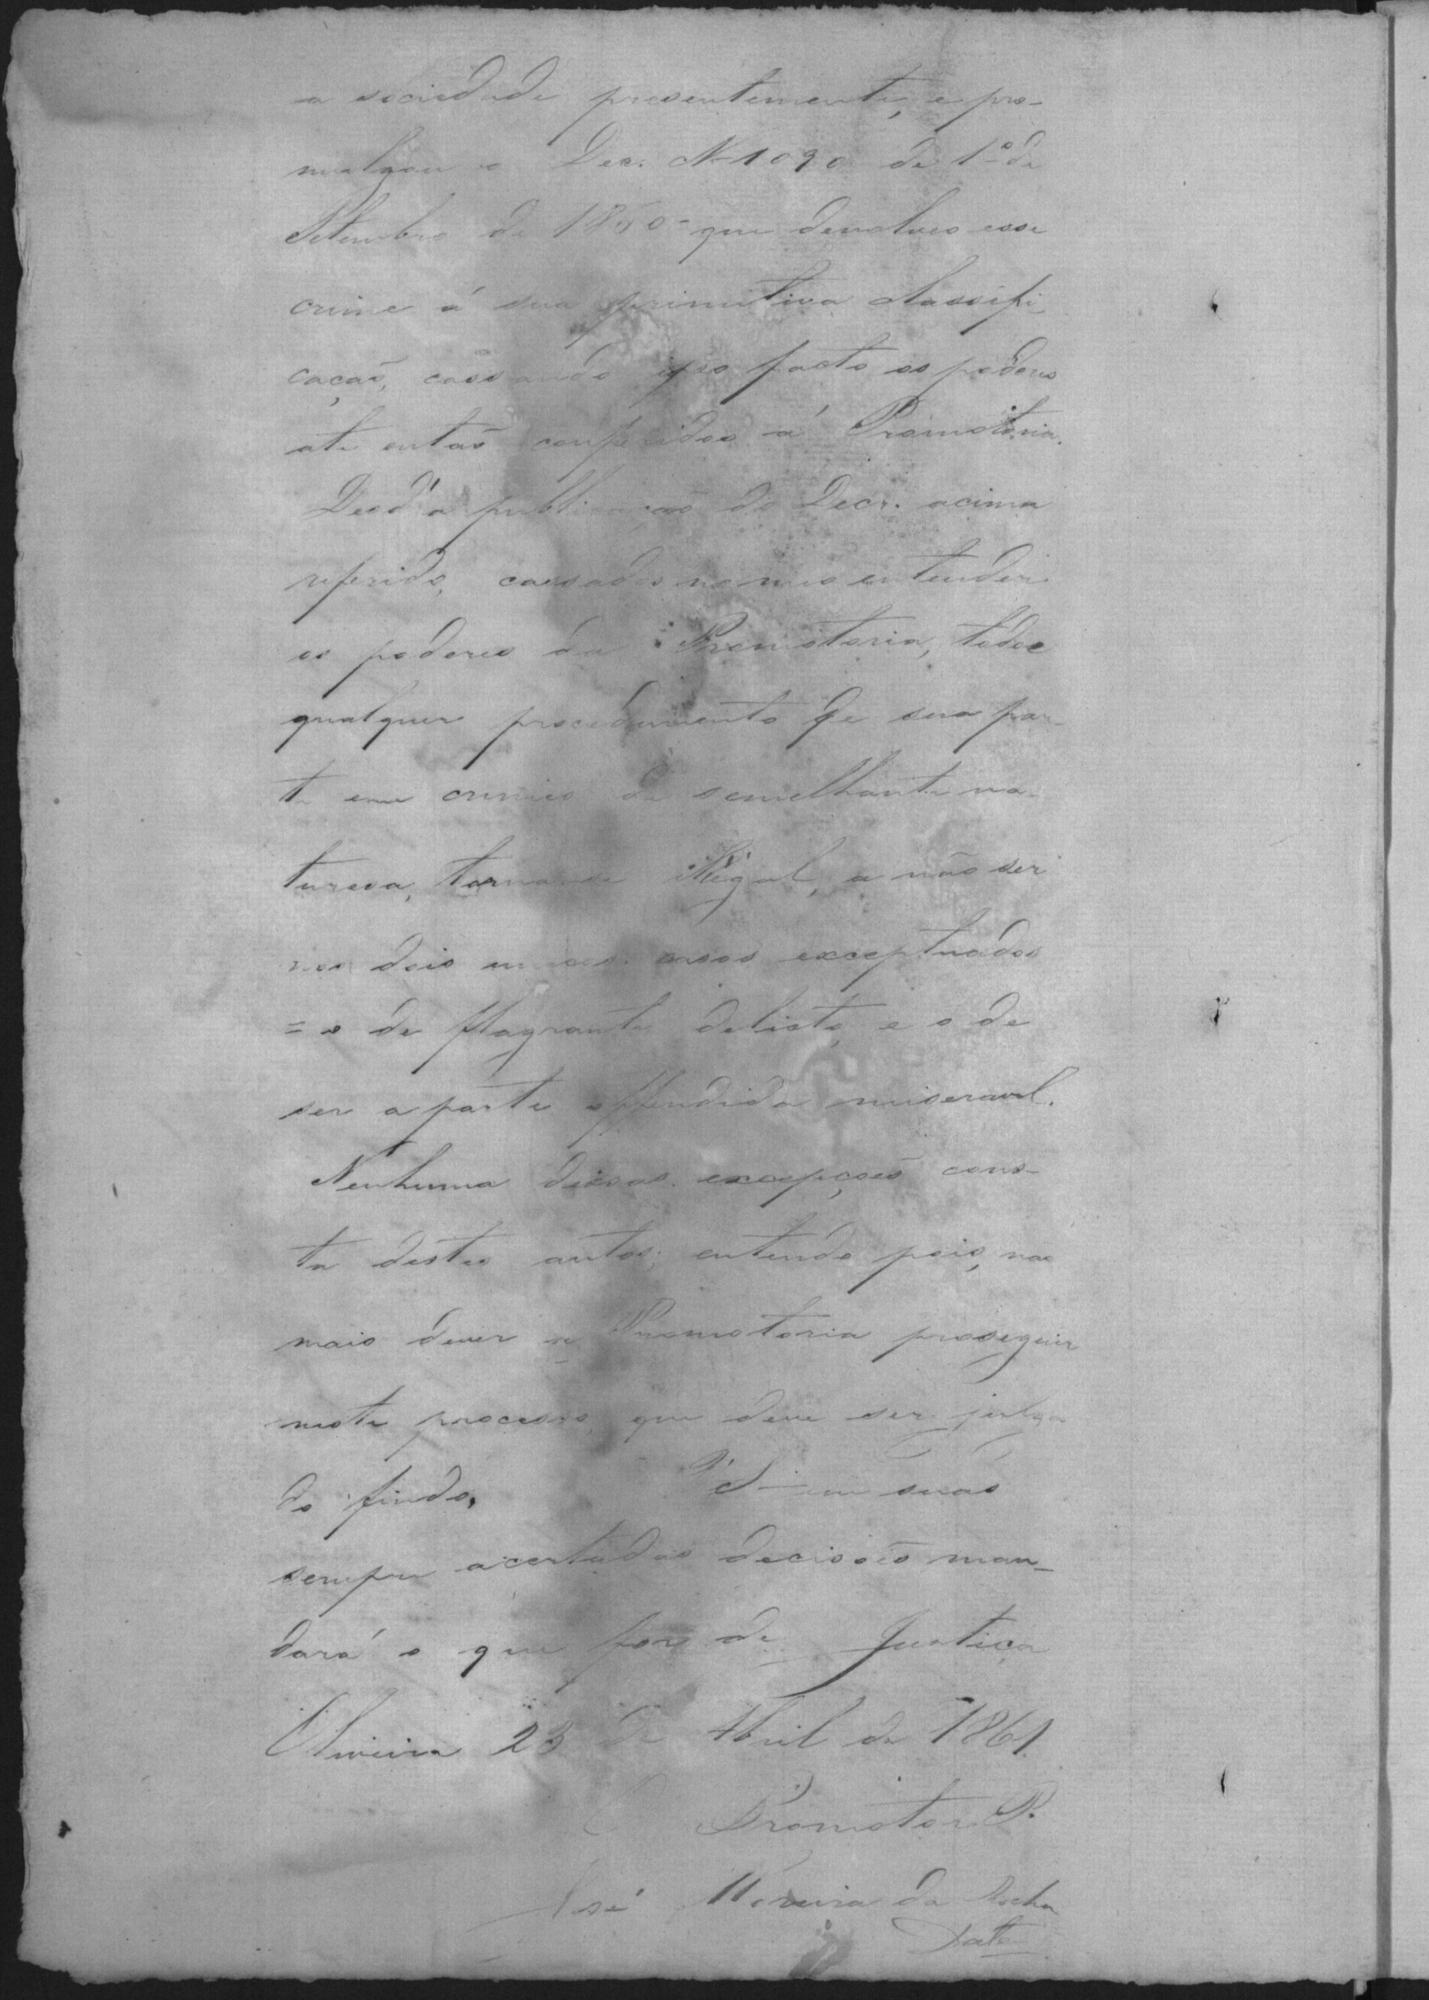 a sociedade presentemente, e pro-
mulgou o Dec. N 1090 de 1º de
Setembro de 1860 - que devolveo esse
crime á sua primitiva classifi
cação, cassando ipso facto os poderes
até então conferidos á Promotoria.
Desd'a publicação do Decr. acima
referido, cassados no meo entender
os poderes da Promotoria, todo e
qualquer procedimento de sua par
te em crimes de semelhante na-
tureza, tornava-se illegal, a não ser
nos dois unicos casos exceptuados
= o de flagrante delicto, e o de
ser a parte offendida miseravel.
Nenhuma dessas excepções cons-
ta destes autos; entendo pois, não
mais dever a Promotoria proseguir
neste processo, que deve ser julga
do findo. V. S. em suas
sempre acertadas decisões man-
dará o que for de Justiça
Oliveira 23 de Abril de 1861.
O Promotor P.
José Moreira da Rocha
Data